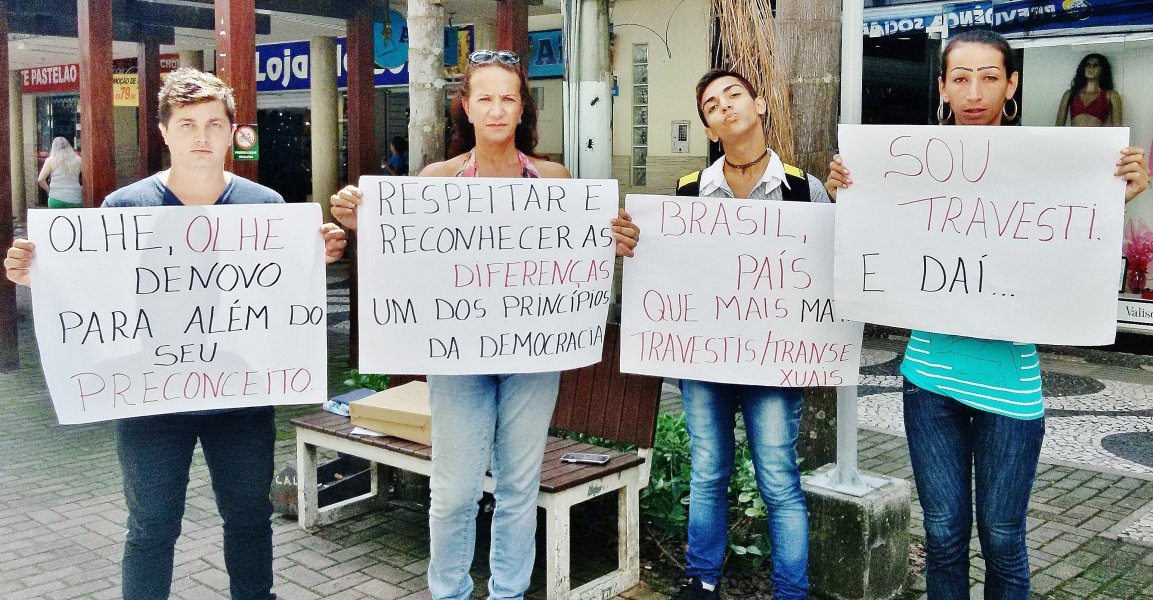 E PASTELÃO
79,
Loja
PREVIDÊNCIA SOCIAL
OLHE, OLHE
DE NOVO
PARA ALÉM DO
SEU
PRECONCEITO.
RESPEITAR E
RECONHECER AS
DIFERENÇAS
UM DOS PRINCÍPIOS
DA DEMOCRACIA
BRASIL,
PAÍS
QUE MAIS MAT
TRAVESTIS/TRANSE
XUAIS
SOU
TRAVESTI.
E DAÍ...
Valise